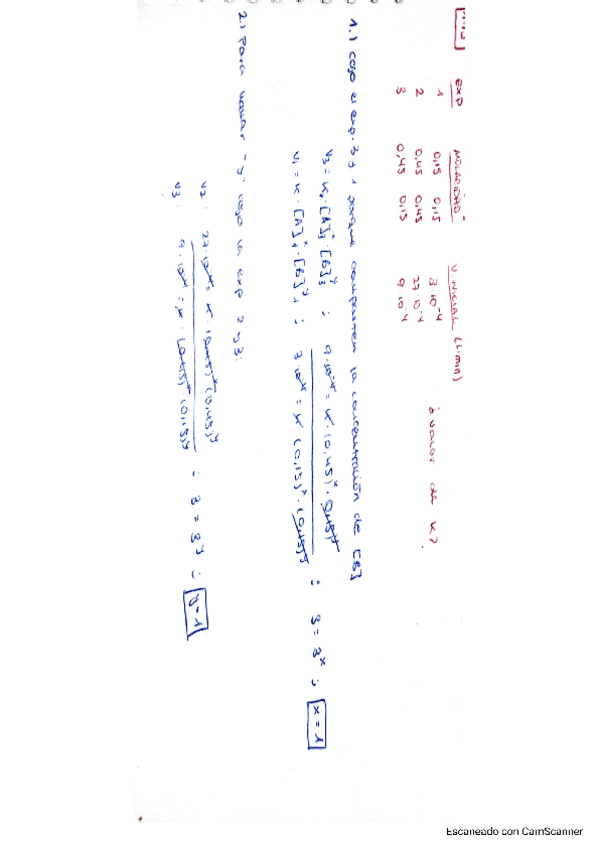 EXP MOLARIDAD V. INICIAL (L·min) ¿valor de K?
1 0,15 0,15 3·10⁻⁴
2 0,45 0,45 27·10⁻⁴
3 0,45 0,15 9·10⁻⁴
1.) cojo el exp. 3 y 1 porque comparten la concentración de [B]
V₃ = K·[A]₃ˣ·[B]₃ʸ : 9·10⁻⁴ = K·(0,45)ˣ·(0,15)ʸ
V₁ = K·[A]₁ˣ·[B]₁ʸ : 3·10⁻⁴ = K·(0,15)ˣ·(0,15)ʸ : 3 = 3ˣ : x = 1
2.) Para hallar "y" cojo la exp 2 y 3:
V₂ : 27·10⁻⁴ = K·(0,45)ˣ(0,45)ʸ
V₃ : 9·10⁻⁴ = K·(0,45)ˣ(0,15)ʸ : 3 = 3ʸ : y = 1
Escaneado con CamScanner